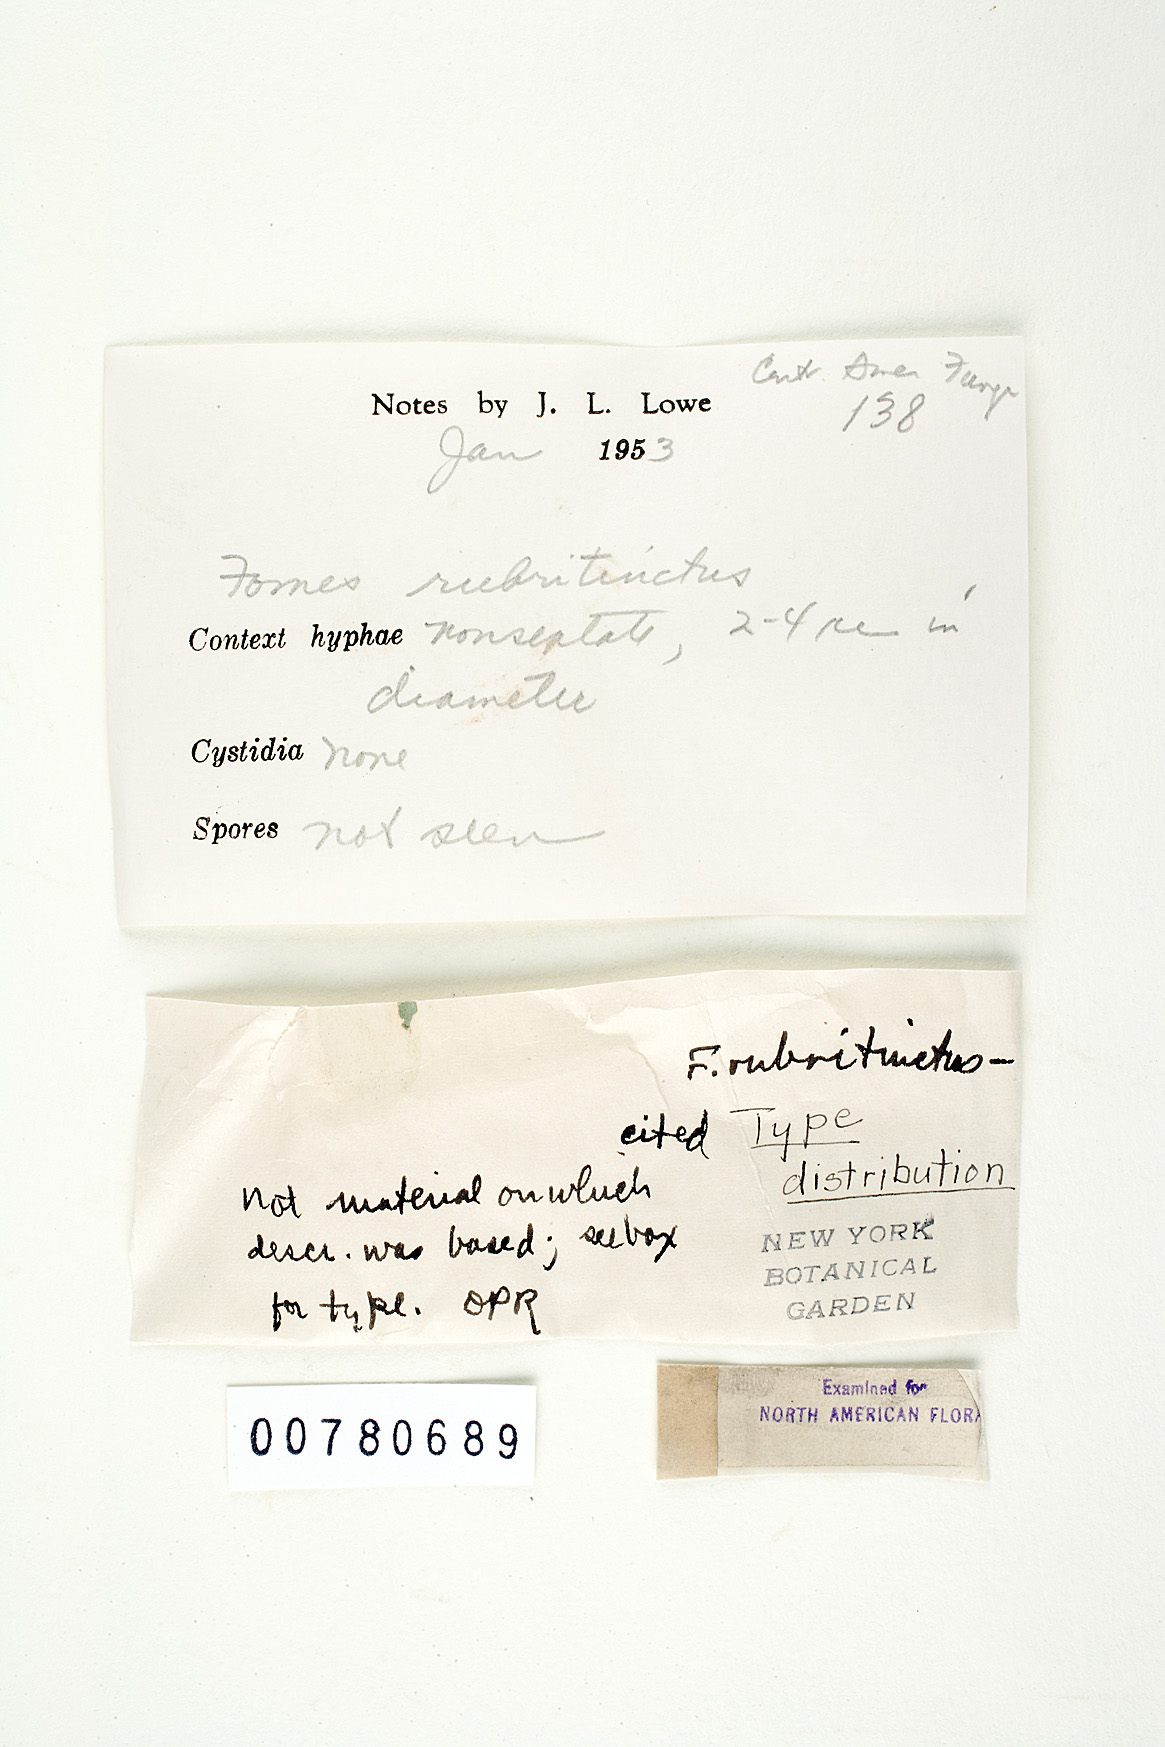 Cent. Amer Fungi
138
Notes by J. L. Lowe
Jan 1953
Fomes rubritinctus
Context hyphae nonseptate, 2-4 µ in
diameter
Cystidia none
Spores not seen
F. rubritinctus-
cited Type
distribution
Not material on which
descr. was based; see box
for type. DPR
NEW YORK
BOTANICAL
GARDEN
00780689
Examined for
NORTH AMERICAN FLORA